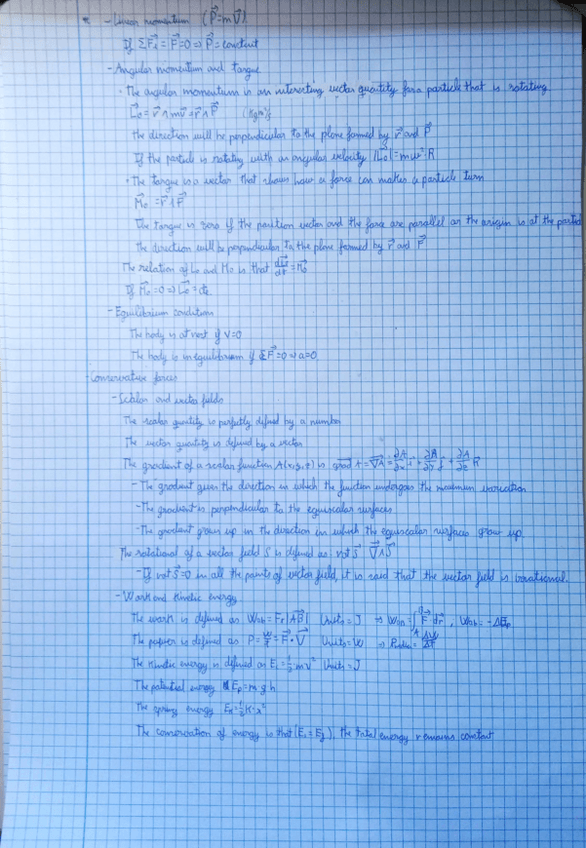 * - Linear momentum (P⃗=m V⃗)
If ΣF⃗i = F⃗=0 ⇒ P⃗ = constant
- Angular momentum and torque
· The angular momentum is an interesting vector quantity for a particle that is rotating.
L⃗o = r⃗ ∧ m v⃗ = r⃗ ∧ P⃗
the direction will be perpendicular to the plane formed by r⃗ and P⃗
If the particle is rotating with an angular velocity |L⃗o| = m ω² R
· The torque is a vector that shows how a force can makes a particle turn
M⃗o = r⃗ ∧ F⃗
The torque is zero if the position vector and the force are parallel or the origin is at the partic
the direction will be perpendicular to the plane formed by r⃗ and F⃗
The relation of Lo and Mo is that dL⃗/dt = M⃗o
If M⃗o = 0 ⇒ L⃗o = cte
- Equilibrium condition
The body is at rest if v=0
The body is in equilibrium if ΣF⃗=0 ⇒ a=0
Conservative forces
- Scalar and vector fields
The scalar quantity is perfectly defined by a number
The vector quantity is defined by a vector
The gradient of a scalar function A(x,y,z) is grad A = ∇A = ∂A/∂x i + ∂A/∂y j + ∂A/∂z k
- The gradient gives the direction in which the function undergoes the maximum variation
- The gradient is perpendicular to the equiscalar surfaces
- The gradient grows up in the direction in which the equiscalar surfaces grow up.
The rotational of a vector field S is defined as: rot S⃗ ∇⃗∧S⃗
- If rot S⃗=0 in all the points of vector field, it is said that the vector field is irrotational.
- Work and kinetic energy
The work is defined as Wab = Fr |AB⃗| Units = J ⇒ Wab = ∫ᴬᴮ F⃗ dr⃗, Wab = -ΔEp
The power is defined as P = W/t = F⃗·V⃗ Units = W ⇒ Pmedia = ΔW/Δt
The kinetic energy is defined as Ec = ½ m v² Units = J
The potential energy Ep = m g h
The spring energy Ek = ½ K·x²
The conservation of energy is that (Ei = Ef), the total energy remains constant